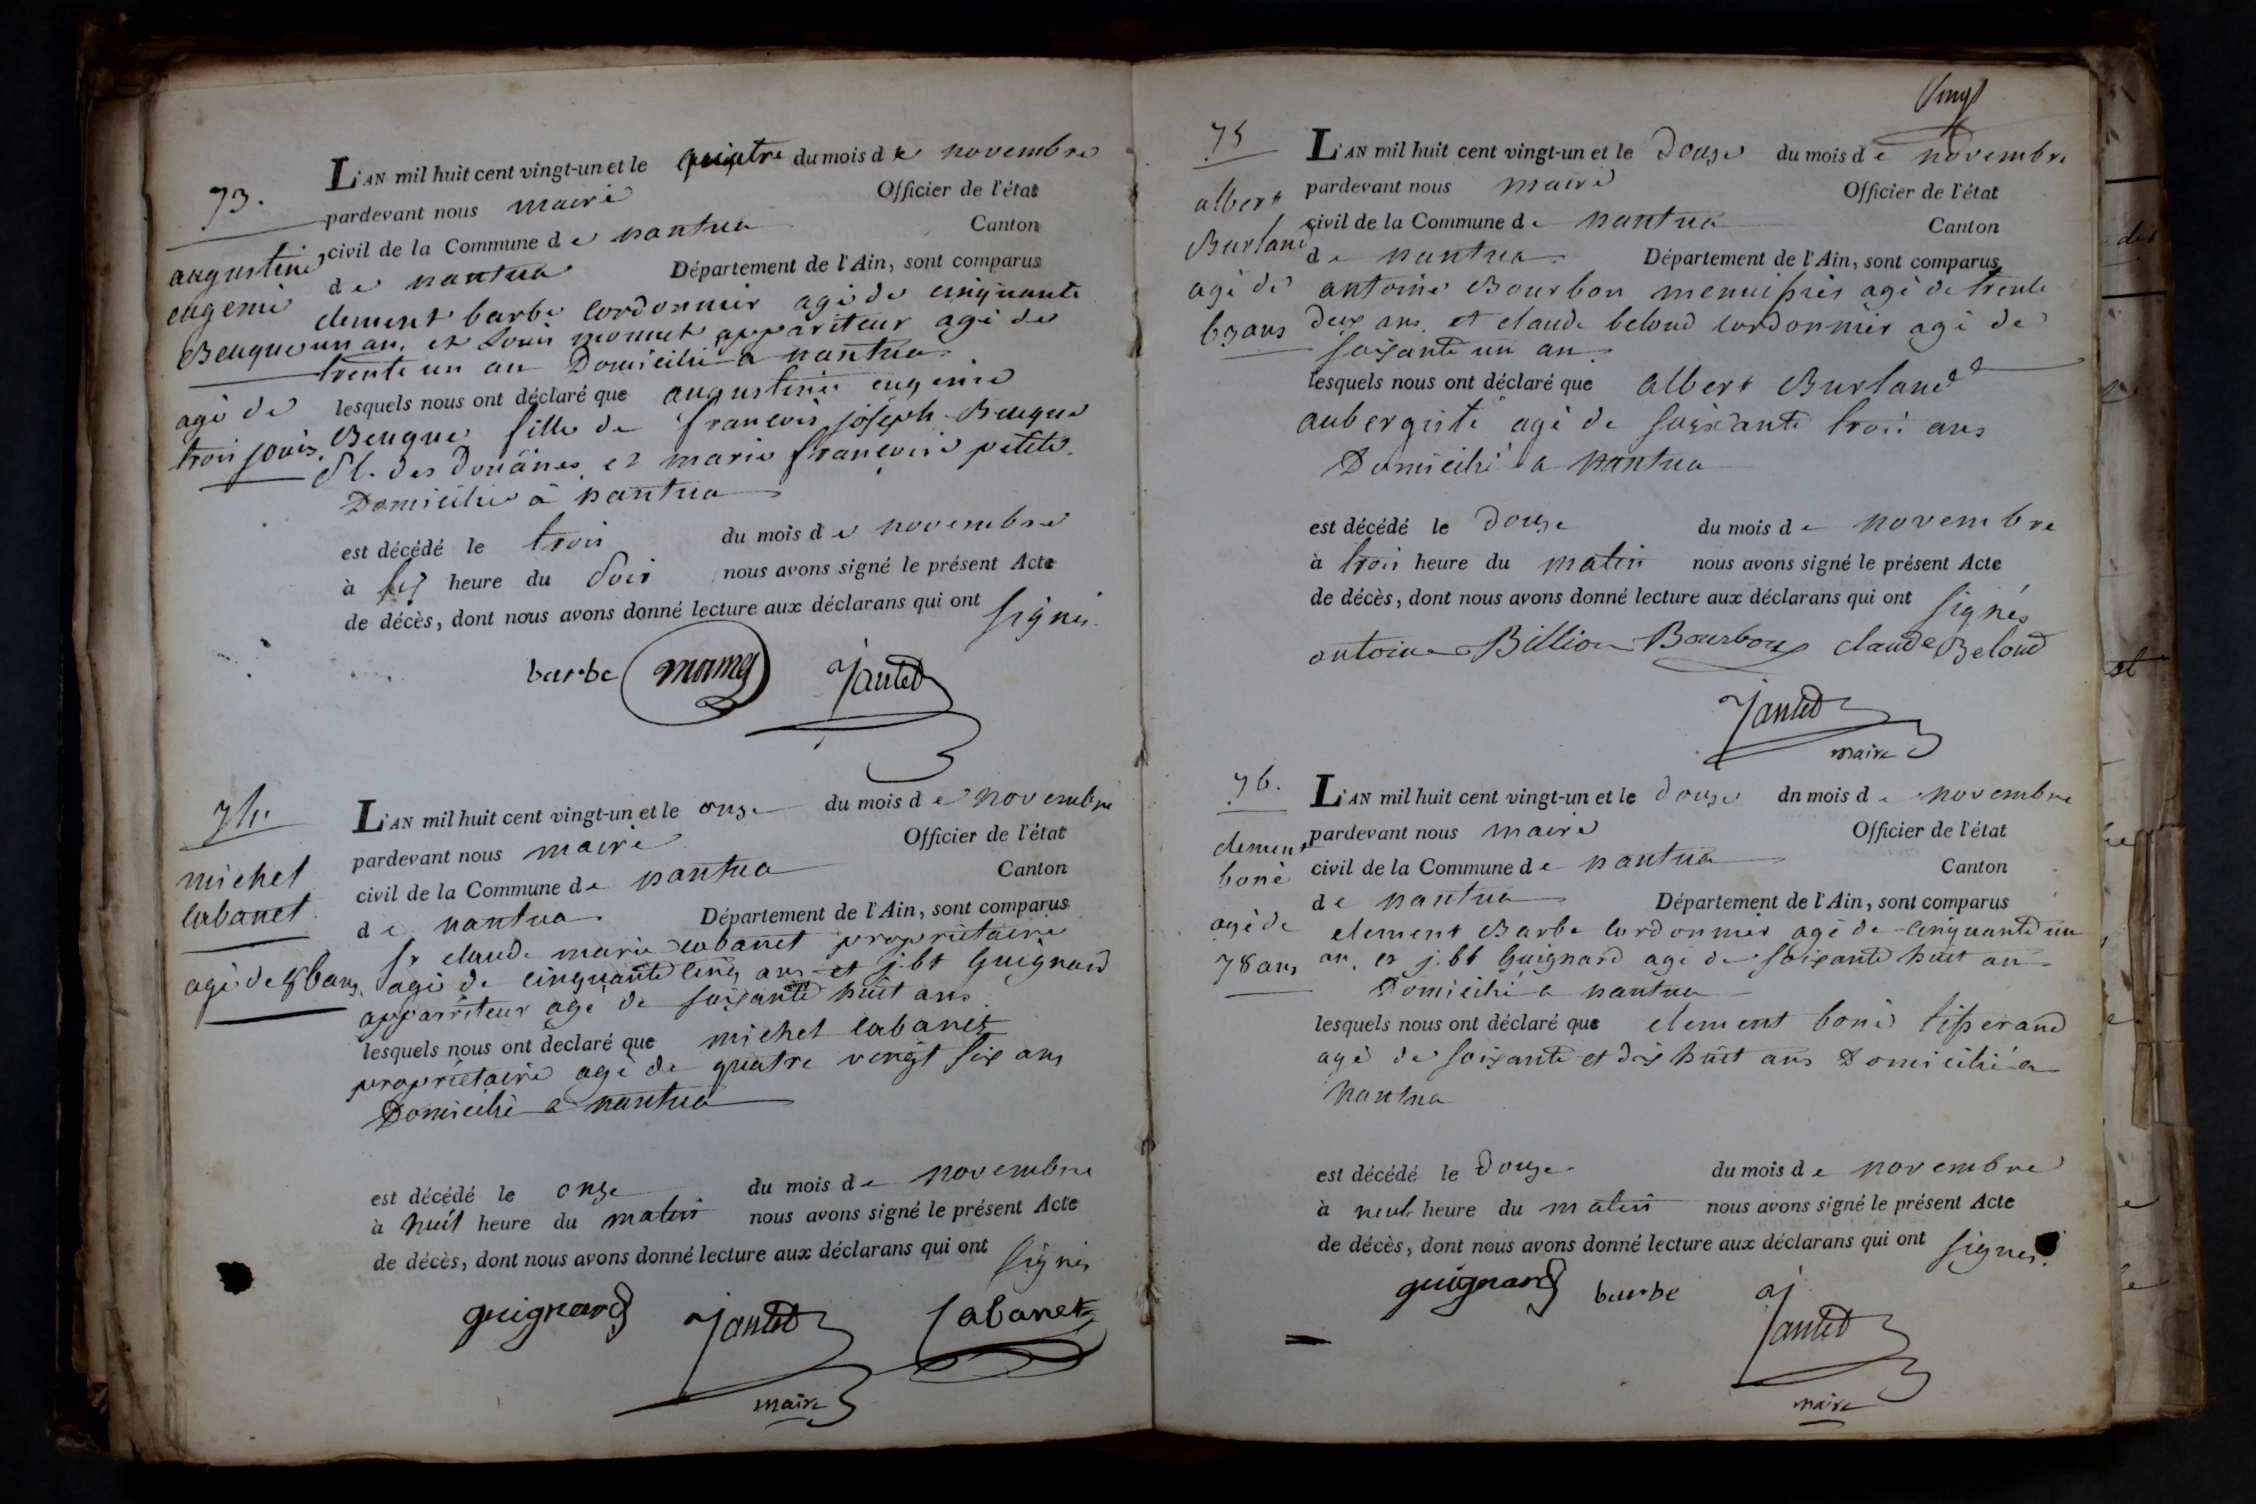 73.
augustine
eugenie
Beuque
agé de
trois jours.
L'AN mil huit cent vingt-un et le quatre du mois de novembre
pardevant nous maire Officier de l'état
civil de la Commune de nantua Canton
de nantua Département de l'Ain, sont comparus
clement barbe cordonnier agé de cinquante
un an, et Louis momet appariteur agé de
trente un an Domicilié a nantua
lesquels nous ont déclaré que augustine eugenie
Beuque fille de francois joseph Beuque
des Douanes et marie francoise petite
Domicilié à nantua
est décédé le trois du mois de novembre
à six heure du Soir nous avons signé le présent Acte
de décès, dont nous avons donné lecture aux déclarans qui ont signés.
barbe Jantet
74.
michel
cabanet
agé de 86 ans.
L'AN mil huit cent vingt-un et le onze du mois de novembre
pardevant nous maire Officier de l'état
civil de la Commune de nantua Canton
de nantua Département de l'Ain, sont comparus
Sr claude marie cabanet proprietaire
agé de cinquante cinq ans et j. bt Guignard
apparriteur agé de soixante huit ans
lesquels nous ont declaré que michel cabanet
proprietaire agé de quatre vingt six ans
Domicilié a nantua
est décédé le onze du mois de novembre
à huit heure du matin nous avons signé le présent Acte
de décès, dont nous avons donné lecture aux déclarans qui ont signés
guignard Jantet Cabanet
maire
vingt
75
albert
Burland
agé de
63 ans
L'AN mil huit cent vingt-un et le Douze du mois de novembre
pardevant nous maire Officier de l'état
civil de la Commune de nantua Canton
de nantua Département de l'Ain, sont comparus
antoine Bourbon menuissier agé de trente
deux ans. et claude beloud cordonnier agé de
soixante un an
lesquels nous ont déclaré que albert Burland
aubergiste agé de soixante trois ans
Domicilié a nantua
est décédé le Douze du mois de novembre
à trois heure du matin nous avons signé le présent Acte
de décès, dont nous avons donné lecture aux déclarans qui ont signés
antoine Billion Bourbon claude Beloud
Jantet
maire
76.
clement
boné
agé de
78 ans
L'AN mil huit cent vingt-un et le Douze dn mois de novembre
pardevant nous maire Officier de l'état
civil de la Commune de nantua Canton
de nantua Département de l'Ain, sont comparus
clement Barbe cordonnier agé de cinquante un
an. et j. bt Guignard agé de soixante huit an
Domicilié a nantua
lesquels nous ont déclaré que clement boné tisserand
agé de soixante et dix huit ans Domicilié a
nantua
est décédé le Douze du mois de novembre
à neuf heure du matin nous avons signé le présent Acte
de décès, dont nous avons donné lecture aux déclarans qui ont signés.
guignard barbe Jantet
maire